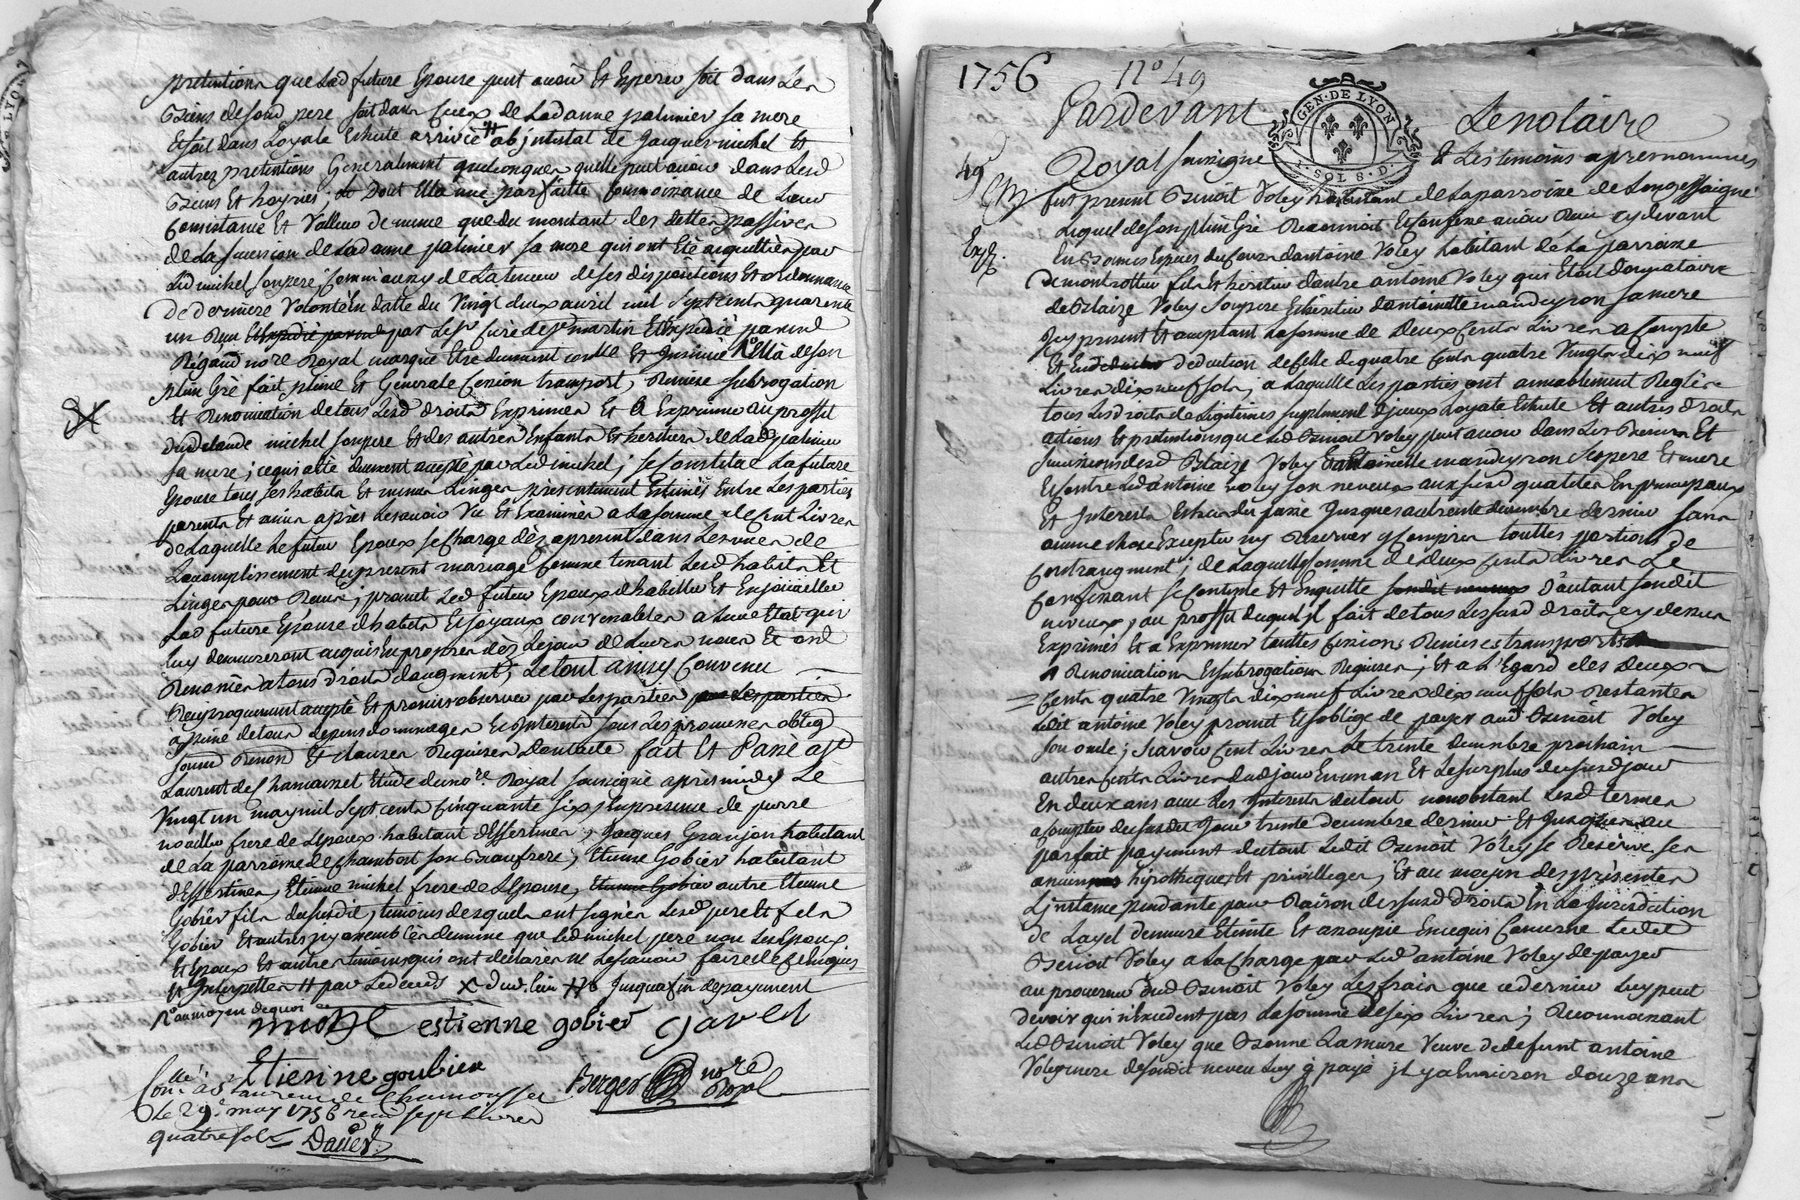 pretentions que Lad future Epouse peut avoir Et Esperer soit dans Les
Biens de sond pere soit dans Ceux de Lad anne palmier sa mere
Et soit dans Loyale Echute arrivée ab jntestat de Jacques michel Et
autres pretentions Generalement quelconques quelle peut avoir dans Lesd
Biens Et hoyries, dont Ella une parfaitte Connoissance de Leur
Consistance Et Valleur de meme que du montant des dettes passives
de La succession de Lad anne palmier sa mere qui ont Eté acquittées par
Led michel son pere, Comme aussy de La teneur de ses dispositions Et ordonnance
de derniere Volonté En datte du Vingt deux avril mil sept cents quarente
un Reçu par le sr Curé de st martin Et Expedié par md
Régaud nore Royal
plein Gré fait pleine Et Generale Cession transport, Remise subrogation
Et Renonciation de tous Lesd droits Exprimés Et a Exprimer au proffit
dud claude michel son pere Et des autres Enfants Et heritiers de Lad palmier
sa mere; ce qui a été dument accepté par Led michel; se Constitue La future
Epouse tous ses habits Et menus Linges presentement Estimés Entre Les parties
parents Et amis après Les avoir Vu Et Examinés a La somme de Cent Livres
de Laquelle Le futur Epoux se Charge dès apresent dans Les vues de
L'accomplissement du present mariage Comme tenant Lesd habits Et
Linges pour Reçus, promet Led futur Epoux d'habiller Et Enjoialler
Lad future Epouse d'habits Et joyaux convenables a Leur Etat qui
luy demeureront acquis En propres dès Le jour de Leurs noces Et ont
Renoncés a tous droits d'augment, Le tout ainsy Convenu
Reciproquement accepté Et promis observer par Les parties par Les parties
a peine de tous depens dommages Et Interets sous Les promesses obligs
soumis Renon Et clauses Requises Dont acte fait Et Passé a St
Laurent de Chamousset Etude du nore Royal soussigné après midy Le
Vingt un may mil sept cents Cinquante six En presence de pierre
noailler frere de L'epoux habitant d'Essertines, Jacques Granjon habitant
de La parroisse de Chambost son Beaufrere, Etienne Gobier habitant
d'Essertines, Etienne michel frere de L'Epouse, Etienne Gobier autre Etienne
Gobier fils du susdit, temoins desquels ont signés Lesd pere Et fils
Gobier Et autres
Et Epoux Et autres temoins qui ont declarés ne Le savoir faire de ce Enquis
Et Interpellés
michel estienne gobier Javelt
Etienne goubier
Berger nore Royal
Conllé a St Laurent de Chamousset
Le 29. may 1756 reçu sept Livres
quatre sols Dauer
1756 no 49
GEN. DE LYON
2 SOLS 8. D.
Pardevant Le notaire
49
Royal soussigné & Les temoins apres nommés
fut present Benoit Voley habitant de La parroisse de Longessaigne
Exp.
Lequel de son plein Gré Reconnoit Et Confesse avoir Reçu cy devant
En Bonnes Especes du Cours d'antoine Voley habitant de La parroisse
de montrottier fils Et heritier d'autre antoine Voley qui Etoit donnataire
de Blaize Voley son pere Et heritier d'antoinette mandeyron sa mere
Jcy present Et acceptant La somme de Deux Cents Livres a Compte
Et En deduction de Celle de quatre Cents quatre Vingts dix neuf
Livres dix neuf sols, a Laquelle Les parties ont amiablement Reglées
tous Les droits de Legitimes suplement d'jceux Loyale Echute Et autres droits
actions Et pretentions que Led Benoit Voley peut avoir dans Les Biens Et
successions desd Blaize Voley Et antoinette mandeyron ses pere Et mere
Et Contre Led antoine voley son neveux aux susd qualités En principaux
Et Interets Echus du passé Jusques au trente decembre dernier sans
aucune chose Excepter ny Reserver y Compris touttes portions de
; de Laquelle somme de deux Cents Livres Le
Confessant se Contente Et En quitte d'autant sondit
neveux, au proffit duquel jl fait de tous Les susd droits cy dessus
Exprimés Et a Exprimer touttes Cessions Remises transports
Renonciations Et subrogations Requises; Et a L'Egard des deux
Cents quatre Vingts dix neuf Livres dix neuf sols Restantes
Ledit antoine Voley promet Et s'oblige de payer aud Benoit Voley
son oncle; sçavoir Cent Livres Le trente decembre prochain
autres Cents Livres dudjour En un an Et Le surplus du susd jour
En deux ans avec Les Interets du tout nonobstant Lesd termes
a Compter du susdit Jour trente decembre dernier Et Jusques au
parfait payement du tout Ledit Benoit Voley se Reserve ses
anciennes hipotheques Et privilleges, Et au moyen des presentes
L'jnstance pendante pour Raison des susd droits En La Jurisdiction
de Layel demeure Eteinte Et assoupie En ce qui Concerne Ledit
Benoit Voley a La Charge par Led antoine Voley de payer
au procureur dud Benoit Voley Les frais que ce dernier Luy peut
devoir qui n'excedent pas La somme de six Livres; Reconnoissant
Led Benoit Voley que Bonne Lamure Veuve de defunt antoine
Voley mere de sondit neveu Luy a payé jl y a Environ douze ans